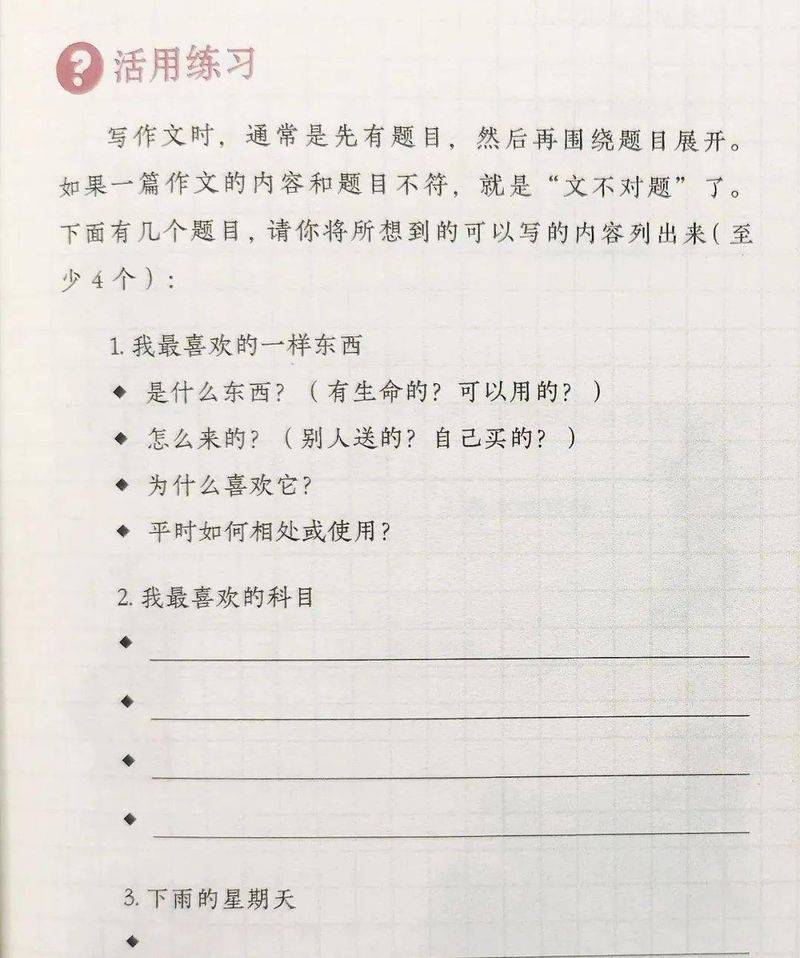 ? 活用练习
写作文时，通常是先有题目，然后再围绕题目展开。
如果一篇作文的内容和题目不符，就是“文不对题”了。
下面有几个题目，请你将所想到的可以写的内容列出来（至
少4个）：
1. 我最喜欢的一样东西
◆ 是什么东西？（有生命的？可以用的？）
◆ 怎么来的？（别人送的？自己买的？）
◆ 为什么喜欢它？
◆ 平时如何相处或使用？
2. 我最喜欢的科目
◆
◆
◆
◆
3. 下雨的星期天
◆